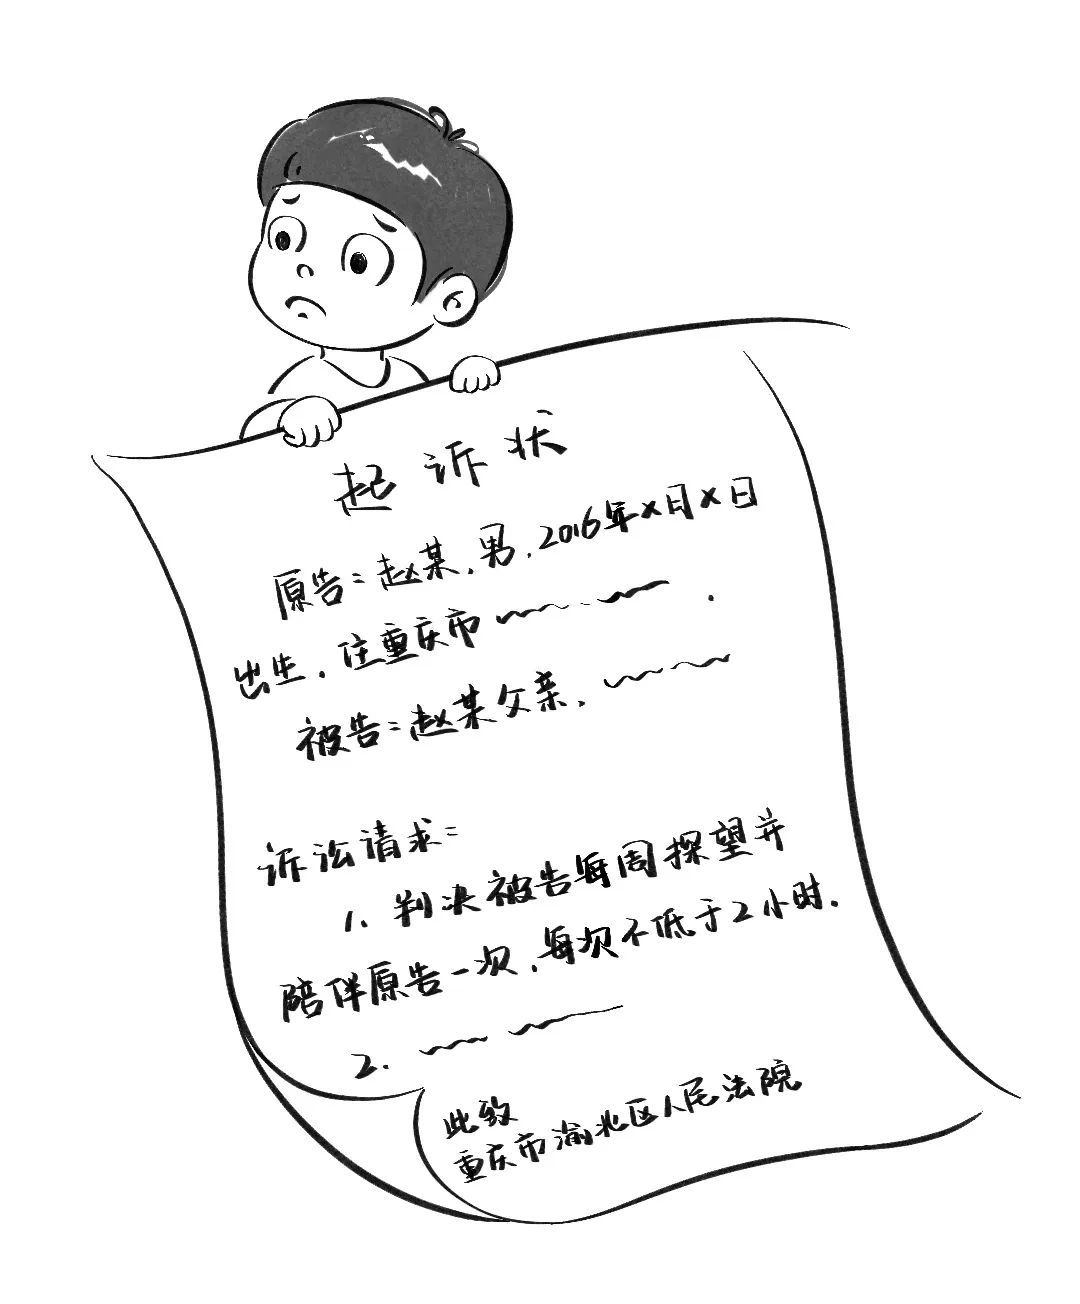 起诉状
原告：赵某，男，2016年×月×日
出生，住重庆市
被告：赵某父亲，
诉讼请求：
1、判决被告每周探望并
陪伴原告一次，每次不低于2小时.
2.
此致
重庆市渝北区人民法院